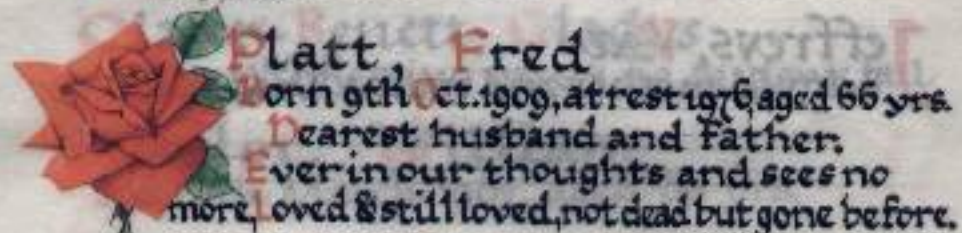 Platt, Fred
Born 9th Oct. 1909, at rest 1976, aged 66 yrs.
Dearest husband and Father.
Ever in our thoughts and sees no
more, Loved & still loved, not dead but gone before.